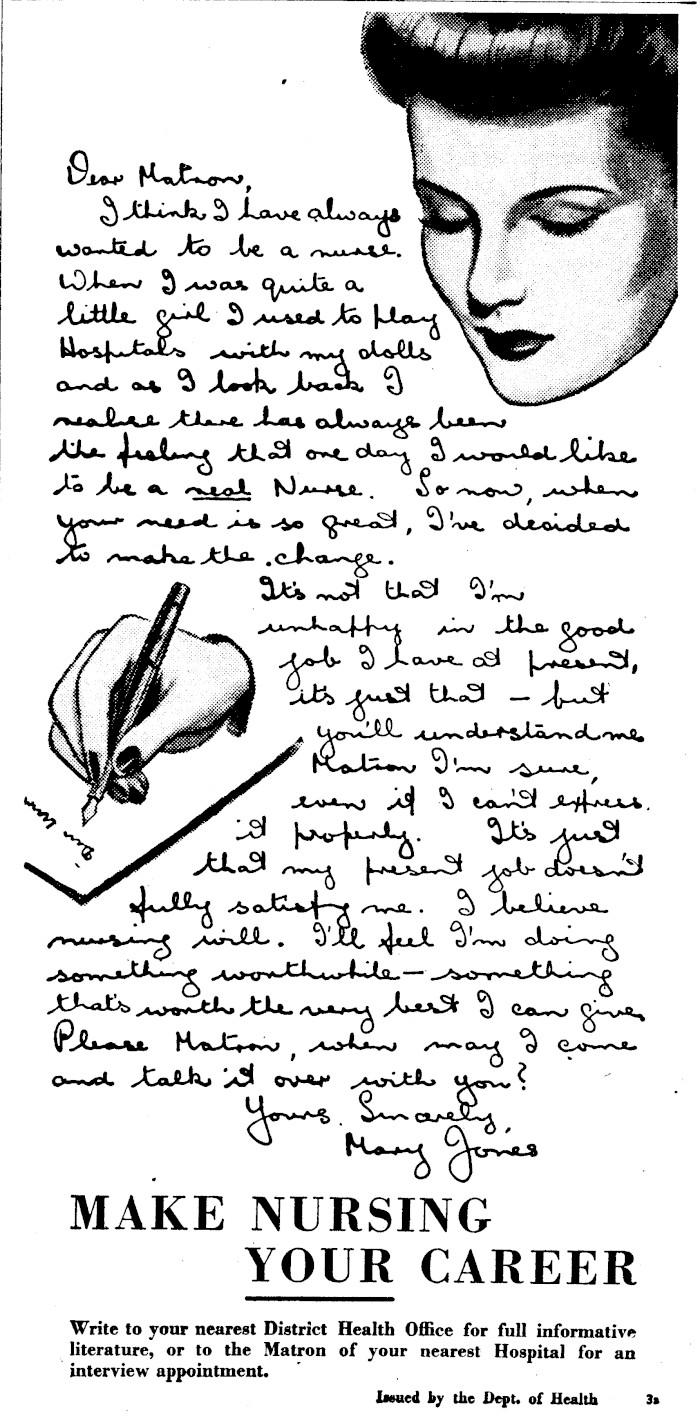 Dear Matron,
I think I have always
wanted to be a nurse.
When I was quite a
little girl I used to play
Hospitals with my dolls
and as I look back I
realise there has always been
the feeling that one day I would like
to be a real Nurse. So now, when
your need is so great, I've decided
to make the change.
It's not that I'm
unhappy in the good
job I have at present,
it's just that – but
you'll understand me
Matron I'm sure,
even if I can't express
it properly. It's just
that my present job doesn't
fully satisfy me. I believe
nursing will. I'll feel I'm doing
something worthwhile – something
that's worth the very best I can give.
Please Matron, when may I come
and talk it over with you?
Yours Sincerely,
Mary Jones
Dear
MAKE NURSING
YOUR CAREER
Write to your nearest District Health Office for full informative
literature, or to the Matron of your nearest Hospital for an
interview appointment.
Issued by the Dept. of Health 3a